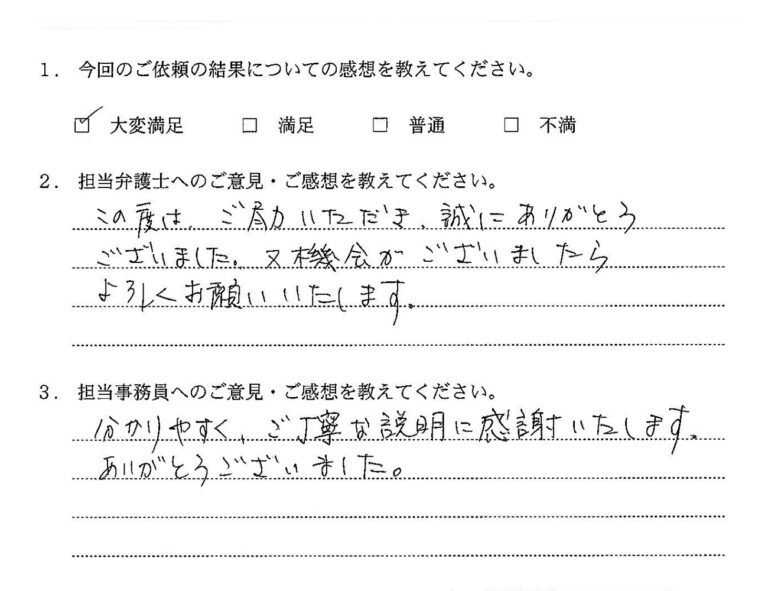 1. 今回のご依頼の結果についての感想を教えてください。
☑ 大変満足 □ 満足 □ 普通 □ 不満
2. 担当弁護士へのご意見・ご感想を教えてください。
この度は、ご尽力いただき、誠にありがとう
ございました。又機会がございましたら
よろしくお願いいたします。
3. 担当事務員へのご意見・ご感想を教えてください。
分かりやすく、ご丁寧な説明に感謝いたします。
ありがとうございました。